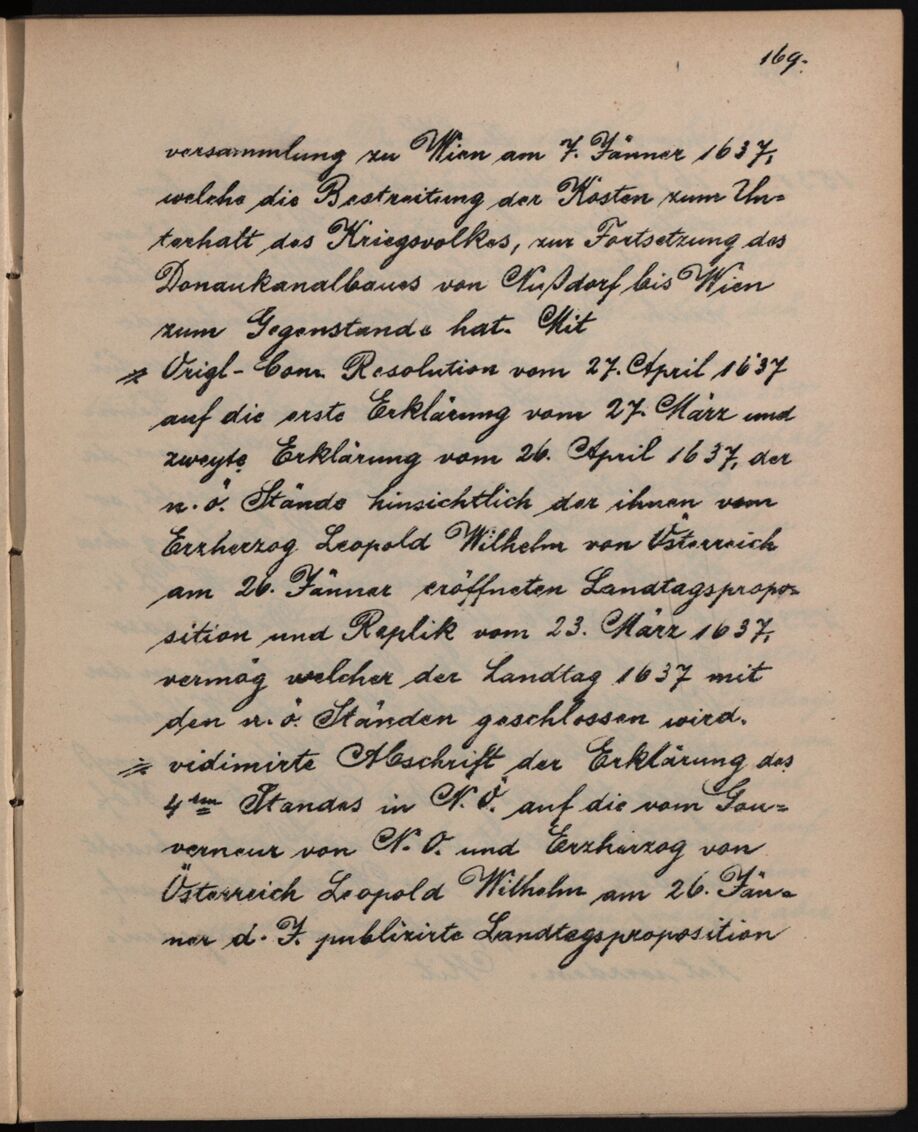 169.
versammlung zu Wien am 7. Jänner 1637,
welche die Bestreitung der Kosten zum Un=
terhalt des Kriegsvolkes, zur Fortsetzung des
Donaukanalbaues von Nußdorf bis Wien
zum Gegenstande hat. Mit
Origl- Com. Resolution vom 27. April 1637
auf die erste Erklärung vom 27. März und
zweyte Erklärung vom 26. April 1637, der
n. ö. Stände hinsichtlich der ihnen vom
Erzherzog Leopold Wilhelm von Österreich
am 26. Jänner eröffneten Landtagspropo=
sition und Replik vom 23. März 1637,
vermög welcher der Landtag 1637 mit
den n. ö. Ständen geschlossen wird.
vidimirte Abschrift der Erklärung des
4ten Standes in N. Ö. auf die vom Gou=
verneur von N. O. und Erzherzog von
Österreich Leopold Wilhelm am 26. Jän=
ner d. J. publizirte Landtagsproposition